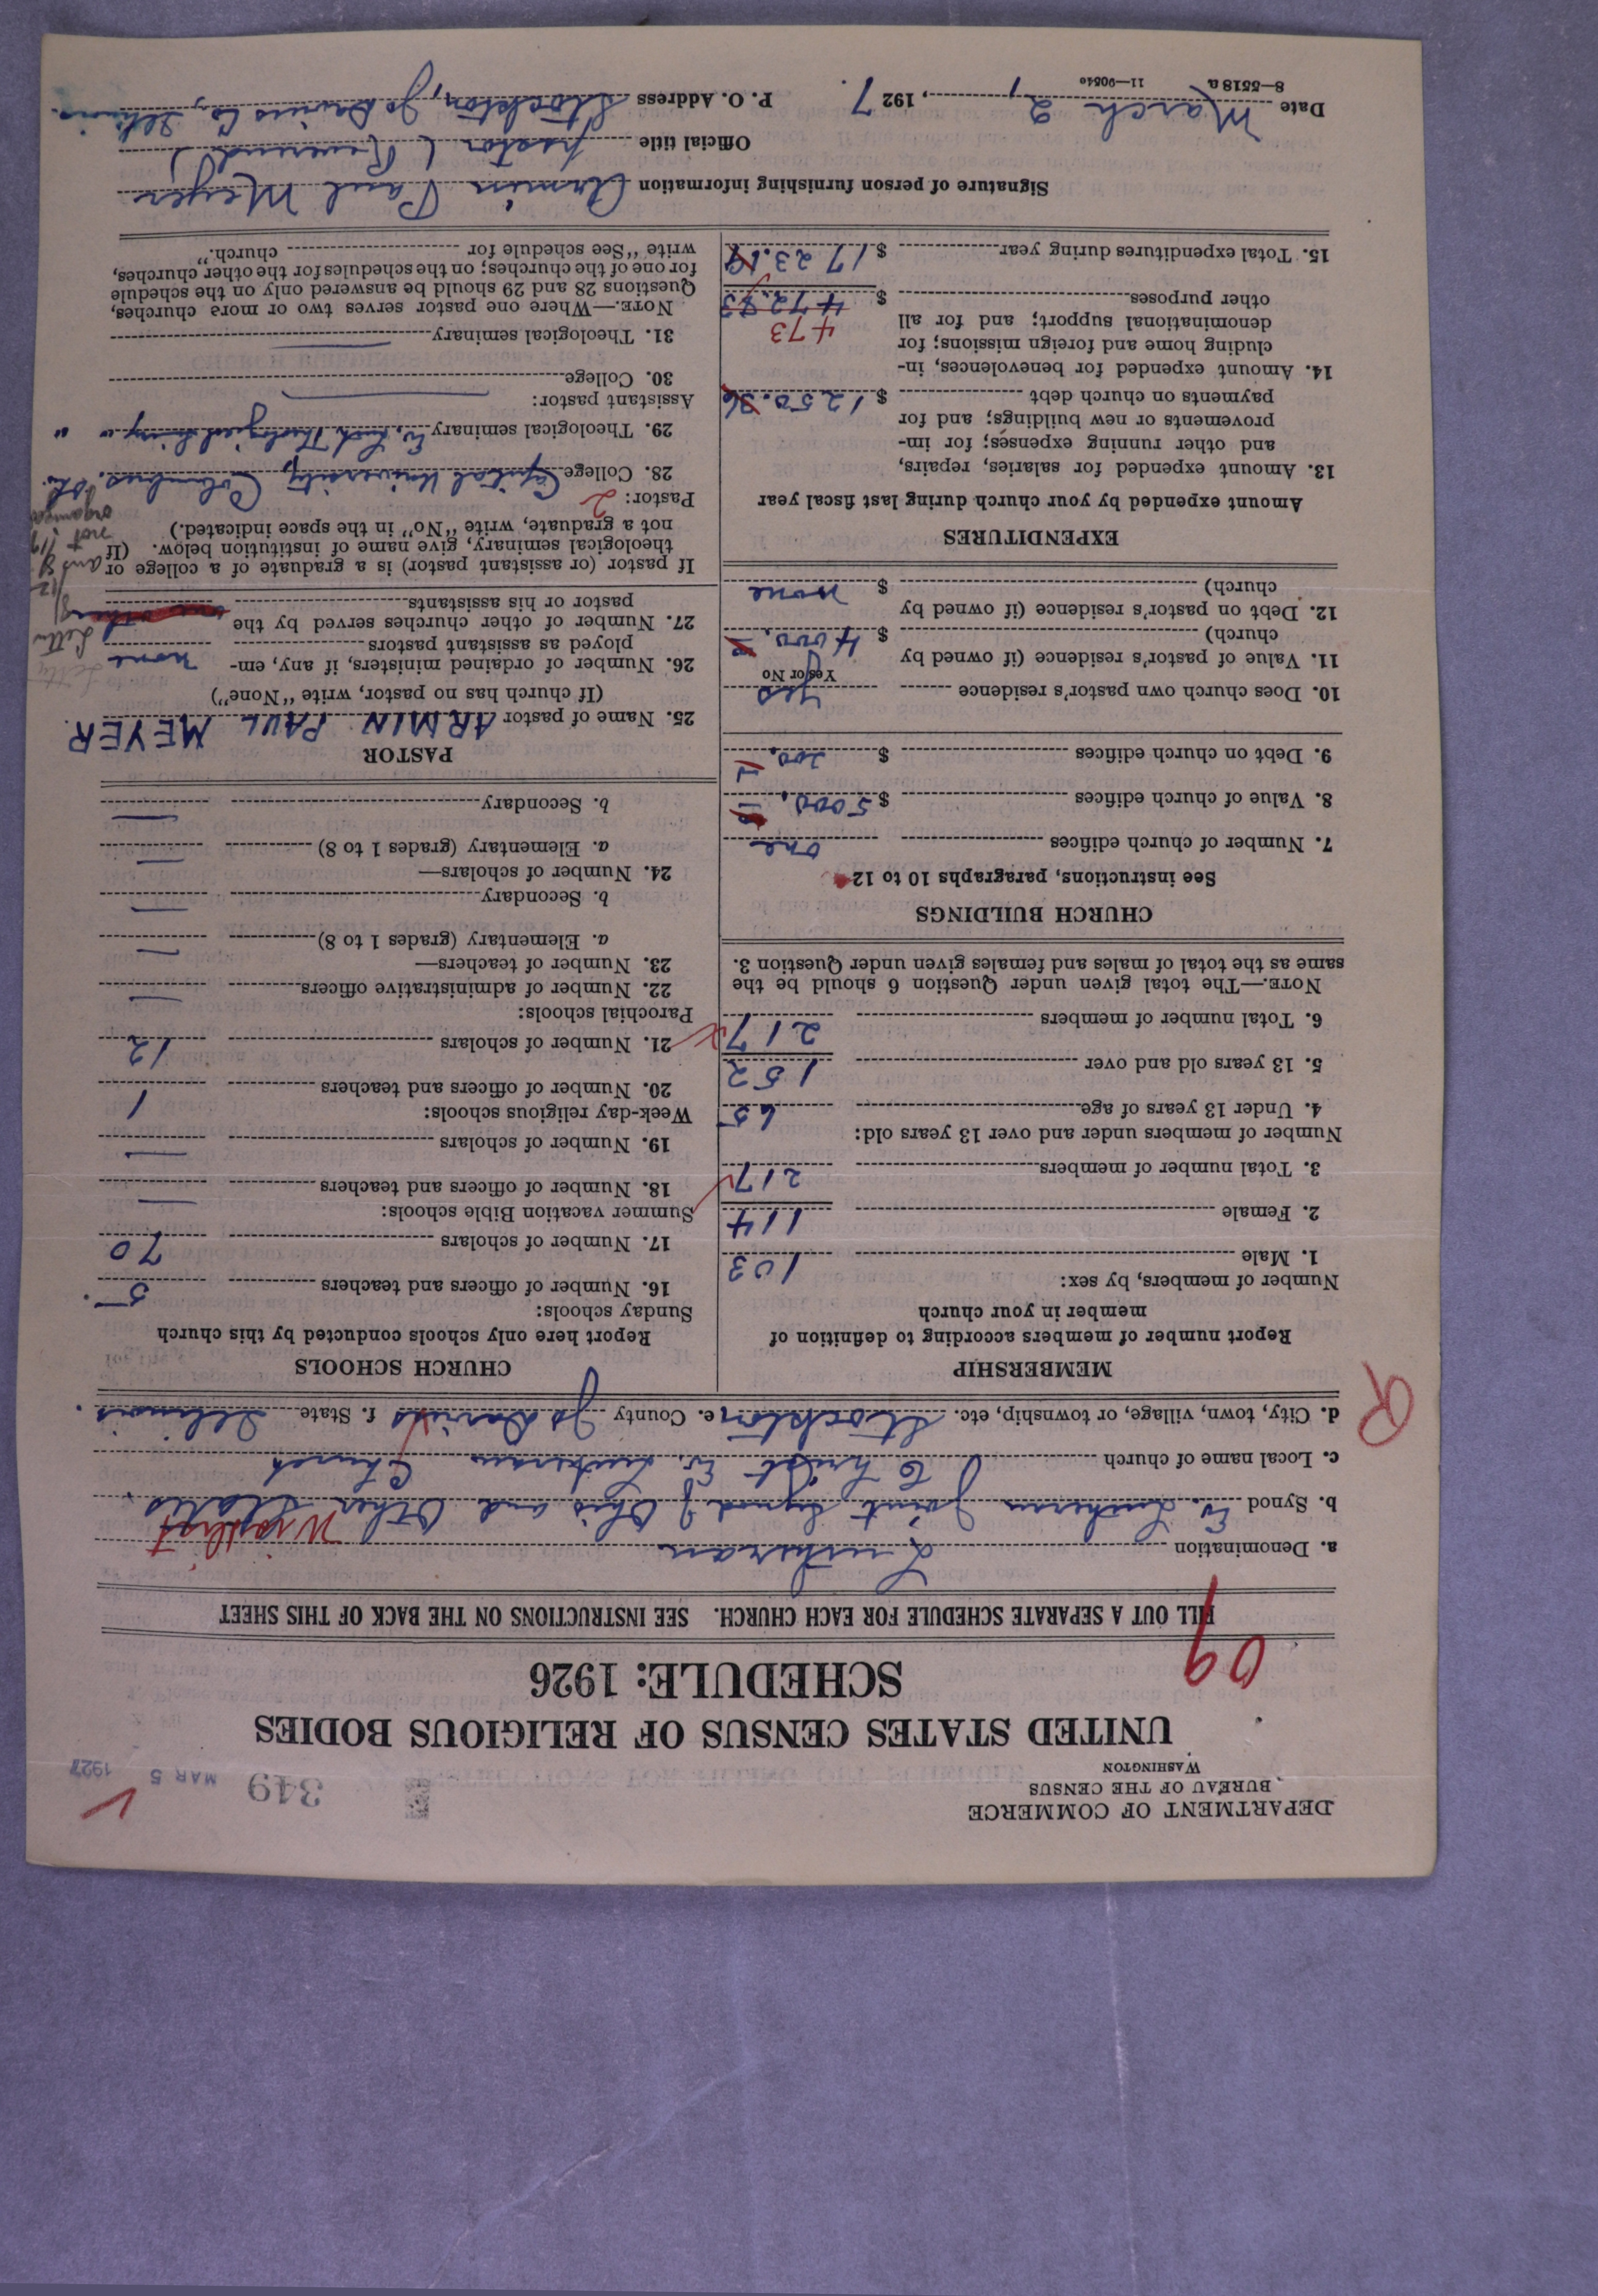 DEPARTMENT OF COMMERCE
BUREAU OF THE CENSUS
WASHINGTON
349
MAR 5 1927
UNITED STATES CENSUS OF RELIGIOUS BODIES
SCHEDULE: 1926
09
FILL OUT A SEPARATE SCHEDULE FOR EACH CHURCH. SEE INSTRUCTIONS ON THE BACK OF THIS SHEET
a. Denomination Lutheran
b. Synod Ev. Lutheran Joint Synod of Ohio and Other States.
c. Local name of church Christ Ev. Lutheran Church
d. City, town, village, or township, etc. Stockton e. County Jo Daviess f. State Illinois.
R
MEMBERSHIP
Report number of members according to definition of
member in your church
Number of members, by sex:
1. Male 103
2. Female 114
3. Total number of members 217
Number of members under and over 13 years old:
4. Under 13 years of age 65
5. 13 years old and over 152
6. Total number of members 217
NOTE.—The total given under Question 6 should be the
same as the total of males and females given under Question 3.
CHURCH BUILDINGS
See instructions, paragraphs 10 to 12
7. Number of church edifices one
8. Value of church edifices $ 5000.
9. Debt on church edifices $ 200.
10. Does church own pastor's residence yes
Yes or No
11. Value of pastor's residence (if owned by
church) $ 4000.
12. Debt on pastor's residence (if owned by
church) $ none
EXPENDITURES
Amount expended by your church during last fiscal year
13. Amount expended for salaries, repairs,
and other running expenses; for im-
provements or new buildings; and for
payments on church debt $ 1250.36
14. Amount expended for benevolences, in-
cluding home and foreign missions; for
denominational support; and for all
473
other purposes $ 472.83
15. Total expenditures during year $ 1723.19
CHURCH SCHOOLS
Report here only schools conducted by this church
Sunday schools:
16. Number of officers and teachers 5
17. Number of scholars 70
Summer vacation Bible schools:
18. Number of officers and teachers —
19. Number of scholars —
Week-day religious schools:
20. Number of officers and teachers 1
21. Number of scholars 12
Parochial schools:
22. Number of administrative officers —
23. Number of teachers—
a. Elementary (grades 1 to 8) —
b. Secondary —
24. Number of scholars—
a. Elementary (grades 1 to 8) —
b. Secondary —
PASTOR
25. Name of pastor ARMIN PAUL MEYER.
(If church has no pastor, write "None")
26. Number of ordained ministers, if any, em-
ployed as assistant pastors none
27. Number of other churches served by the
pastor or his assistants
Letter
If pastor (or assistant pastor) is a graduate of a college or
theological seminary, give name of institution below. (If
not a graduate, write "No" in the space indicated.)
not
organized
Pastor: 2
28. College Capital University, Columbus, Oh.
29. Theological seminary Ev. Luth. Theological Sem'y " "
Assistant pastor:
30. College
31. Theological seminary
NOTE.—Where one pastor serves two or more churches,
Questions 28 and 29 should be answered only on the schedule
for one of the churches; on the schedules for the other churches,
write "See schedule for church."
Signature of person furnishing information Armin Paul Meyer
Official title pastor (Reverend)
Date March 2, 1927. P. O. Address Stockton, Jo Daviess Co., Illinois.
8—5518a 11—9054o